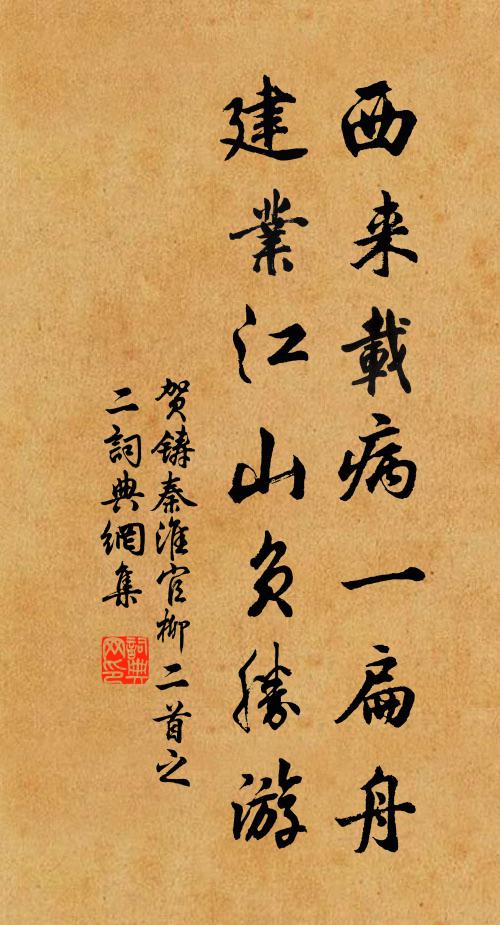 西来載病一扁舟
建業江山负勝游
贺铸秦淮官柳二首之
二詞典網集
詞典
网印